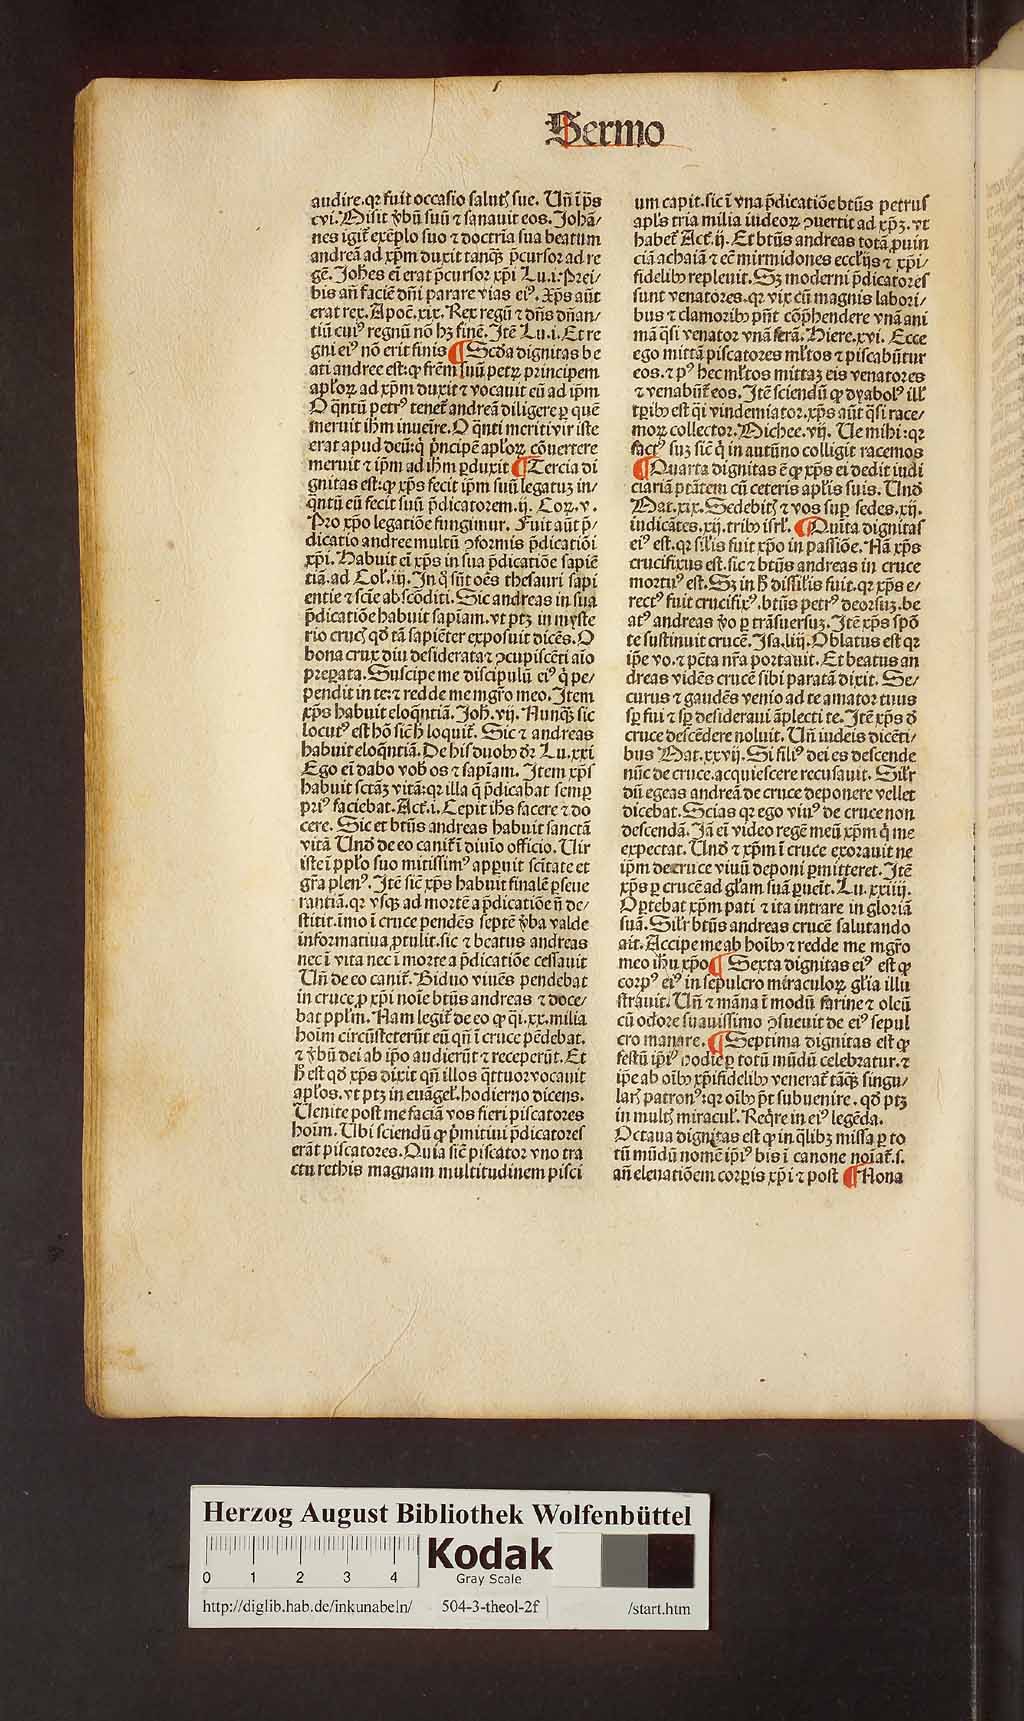 Sermo
audire. qꝛ fuit occasio salutꝭ sue. Uñ ī p̄s
cvi. Misit v̄bū suū ⁊ sanauit eos. Johā⸗
nes igit̄ exēplo suo ⁊ doctrīa sua beatum
andreā ad xp̄m duxit tanqꝫ p̄cursor ad re
gē. Joħes eī erat p̄cursor xp̄i Lu. i. Prei⸗
bis añ faciē dn̄i parare vias eiꝰ. Xp̄s aūt
erat rex. Apoc̄. xix. Rex regū ⁊ dn̄s dn̄an⸗
tiū cuiꝰ regnū nō hꝫ finē. Itē Lu. i. Et re
gni eiꝰ nō erit finis ¶ Scd̄a dignitas be
ati andree est: ꝙ frēm suū petꝝ principem
apl̄oꝝ ad xp̄m duxit ⁊ vocauit eū ad ip̄m
O qntū petrꝰ tenet̄ andreā diligere ꝑ quē
meruit ihm̄ inueīre. O qnti meriti vir iste
erat apud deū: q̇ p̄ncipē apl̄oꝝ cōuertere
meruit ⁊ ip̄m ad ihm̄ ꝑduxit ¶ Tercia di
gnitas est: ꝙ xp̄s fecit ip̄m suū legatuꝫ in⸗
qntū eū fecit suū p̄dicatorem. ij. Coꝝ. v.
Pro xp̄o legatiōe fungimur. Fuit aūt p̄⸗
dicatio andree multū ꝯformis p̄dicatiōi
xp̄i. Habuit eī xp̄s in sua p̄dicatiōe sapiē
tiā. ad Col̄. iij. In q̇ sūt oēs thesauri sapi
entie ⁊ scīe abscōditi. Sic andreas in sua
p̄dicatiōe habuit sapīam. vt ptꝫ in myste
rio crucꝭ qd̄ tā sapiēter exposuit dicēs. O
bona crux diu desiderata ⁊ ꝯcupiscēti aīo
preꝑata. Suscipe me discipulū eiꝰ q̇ pe⸗
pendit in te: ⁊ redde me mgr̄o meo. Item
xp̄s habuit eloqntiā. Joħ. vij. Nunqꝫ sic
locutꝰ est hō sic̄ h̄ loquit̄. Sic ⁊ andreas
habuit eloqntiā. De his duobꝰ dr̄ Lu. xxi
Ego eī dabo vob̄ os ⁊ sapīam. Item xp̄s
habuit sctāꝫ vitā: qꝛ illa q̄ p̄dicabat semꝑ
priꝰ faciebat. Act̄. i. Cepit ihs̄ facere ⁊ do
cere. Sic et btūs andreas habuit sanctā
vitā Und̄ de eo canit̄ ī diuīo officio. Uir
iste ī pp̄lo suo mitissimꝰ apꝑuit scītate et
gr̄a plenꝰ. Itē sic̄ xp̄s habuit finalē ꝑseue
rantiā. qꝛ vsqꝫ ad mortē a p̄dicatiōe n̄ de⸗
stitit. imo ī cruce pendēs septē v̄ba valde
informatiua ꝓtulit. sic ⁊ beatus andreas
nec ī vita nec ī morte a p̄dicatiōe cessauit
Uñ de eo canit̄. Biduo viuēs pendebat
in cruce ꝓ xp̄i noīe btūs andreas ⁊ doce⸗
bat pplm̄. Nam legit̄ de eo ꝙ q̄i. xx. milia
hoīm circūsteterūt eū qn̄ ī cruce pēdebat.
⁊ v̄bū dei ab ip̄o audierūt ⁊ receperūt. Et
h̄ est qd̄ xp̄s dixit qn̄ illos q̄ttuor vocauit
apl̄os. vt ptꝫ in euāgel̄. hodierno dicens.
Uenite post me faciā vos fieri piscatores
hoīm. Ubi sciendū ꝙ p̄mitiui p̄dicatores
erāt piscatores. Quia sic̄ piscator vno tra
ctu rethis magnam multitudinem pisci
um capit. sic ī vna p̄dicatiōe btūs petrus
apl̄s tria milia iudeoꝝ ꝯuertit ad xp̄ꝫ. vt
habet̄ Act̄. ij. Et btūs andreas totā ꝓuin
ciā achaiā ⁊ ec̄ mirmidones eccl̄ijs ⁊ xp̄i⸗
fidelibꝰ repleuit. Sꝫ moderni p̄dicatores
sunt venatores. qꝛ vix cū magnis labori⸗
bus ⁊ clamoribꝰ pn̄t cōp̄hendere vnā ani
mā q̄si venator vnā ferā. Hiere. xvi. Ecce
ego mittā piscatores ml̄tos ⁊ piscabūtur
eos. ⁊ pꝰ hec ml̄tos mittaꝫ eis venatores
⁊ venabūt̄ eos. Itē sciendū ꝙ dyabolꝰ ill̄
tꝑibꝰ est q̄i vindemiator. xp̄s aūt q̄si race⸗
moꝝ collector. Michee. vij. Ue mihi: qꝛ
factꝰ suꝫ sic̄ q̇ in autūno colligit racemos
¶ Quarta dignitas ē ꝙ xp̄s ei dedit iudi
ciariā ptāt̄em cū ceteris apl̄is suis. Und̄
Mat. xix. Sedebitꝭ ⁊ vos suꝑ sedes. xij.
iudicātes. xij. tribꝰ isrl̄. ¶ Quīta dignitas
eiꝰ est. qꝛ sil̄is fuit xp̄o in passiōe. Nā xp̄s
crucifixus est. sic ⁊ btūs andreas in cruce
mortuꝰ est. Sꝫ in h̄ dissil̄is fuit. qꝛ xp̄s e⸗
rectꝰ fuit crucifixꝰ. btūs petrꝰ deorsuꝫ. be
atꝰ andreas v̄o ꝑ trāsuersuꝫ. Itē xp̄s spō
te sustinuit crucē. Isa. liij. Oblatus est qꝛ
ip̄e vo. ⁊ pc̄ta nr̄a portauit. Et beatus an
dreas vidēs crucē sibi paratā dixit. Se⸗
curus ⁊ gaudēs venio ad te amator tuus
sp̄ fui ⁊ sp̄ desideraui āplecti te. Itē xp̄s d̄
cruce descēdere noluit. Uñ iudeis dicēti⸗
bus Mat. xxvij. Si filiꝰ dei es descende
nūc de cruce. acquiescere recusauit. Sil̄r
dū egeas andreā de cruce deponere vellet
dicebat. Scias qꝛ ego viuꝰ de cruce non
descendā. Jā eī video regē meū xp̄m q̇ me
expectat. Und̄ ⁊ xp̄m ī cruce exorauit ne
ip̄m de cruce viuū deponi ꝑmitteret. Itē
xp̄s ꝑ crucē ad gl̄am suā ꝑueīt. Lu. xxiiij.
Oꝑtebat xp̄m pati ⁊ ita intrare in gloriā
suā. Sil̄r btūs andreas crucē salutando
ait. Accipe me ab hoībꝰ ⁊ redde me mgr̄o
meo ihū xp̄o ¶ Sexta dignitas eiꝰ est ꝙ
corpꝰ eiꝰ in sepulcro miraculoꝝ gl̄ia illu
strauit. Uñ ⁊ māna ī modū farine ⁊ oleū
cū odore suauissimo ꝯsueuit de eiꝰ sepul
cro manare. ¶ Septima dignitas est ꝙ
festū ip̄iꝰ hodie ꝑ totū mūdū celebratur. ⁊
ip̄e ab oībꝰ xp̄ifidelibꝰ venerat̄ tāqꝫ singu⸗
larꝭ patronꝰ: qꝛ oībꝰ p̄t subuenire. qd̄ ptꝫ
in multꝭ miracul̄. Req̄re in eiꝰ legēda.
Octaua dignitas est ꝙ in q̄libꝫ missa ꝑ to
tū mūdū nomē ip̄iꝰ bis ī canone noīat̄. s.
añ eleuatiōem corꝑis xp̄i ⁊ post ¶ Nona
Herzog August Bibliothek Wolfenbüttel
0 1 2 3 4
Kodak
Gray Scale
http://diglib.hab.de/inkunabeln/ 504-3-theol-2f /start.htm